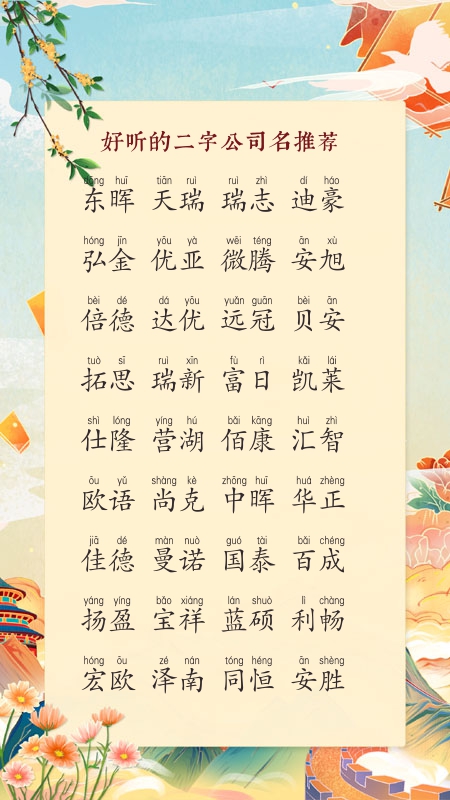 好听的二字公司名推荐
dōng huī tiān ruì ruì zhì dí háo
东晖 天瑞 瑞志 迪豪
hóng jīn yōu yà wēi téng ān xù
弘金 优亚 微腾 安旭
bèi dé dá yōu yuǎn guān bèi ān
倍德 达优 远冠 贝安
tuò sī ruì xīn fù rì kǎi lái
拓思 瑞新 富日 凯莱
shì lóng yíng hú bǎi kāng huì zhì
仕隆 营湖 佰康 汇智
ōu yǔ shàng kè zhōng huī huá zhèng
欧语 尚克 中晖 华正
jiā dé màn nuò guó tài bǎi chéng
佳德 曼诺 国泰 百成
yáng yíng bǎo xiáng lán shuò lì chàng
扬盈 宝祥 蓝硕 利畅
hóng ōu zé nán tóng héng ān shèng
宏欧 泽南 同恒 安胜